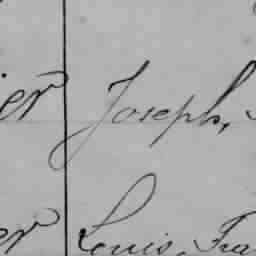 er Joseph,
er Louis, Fra